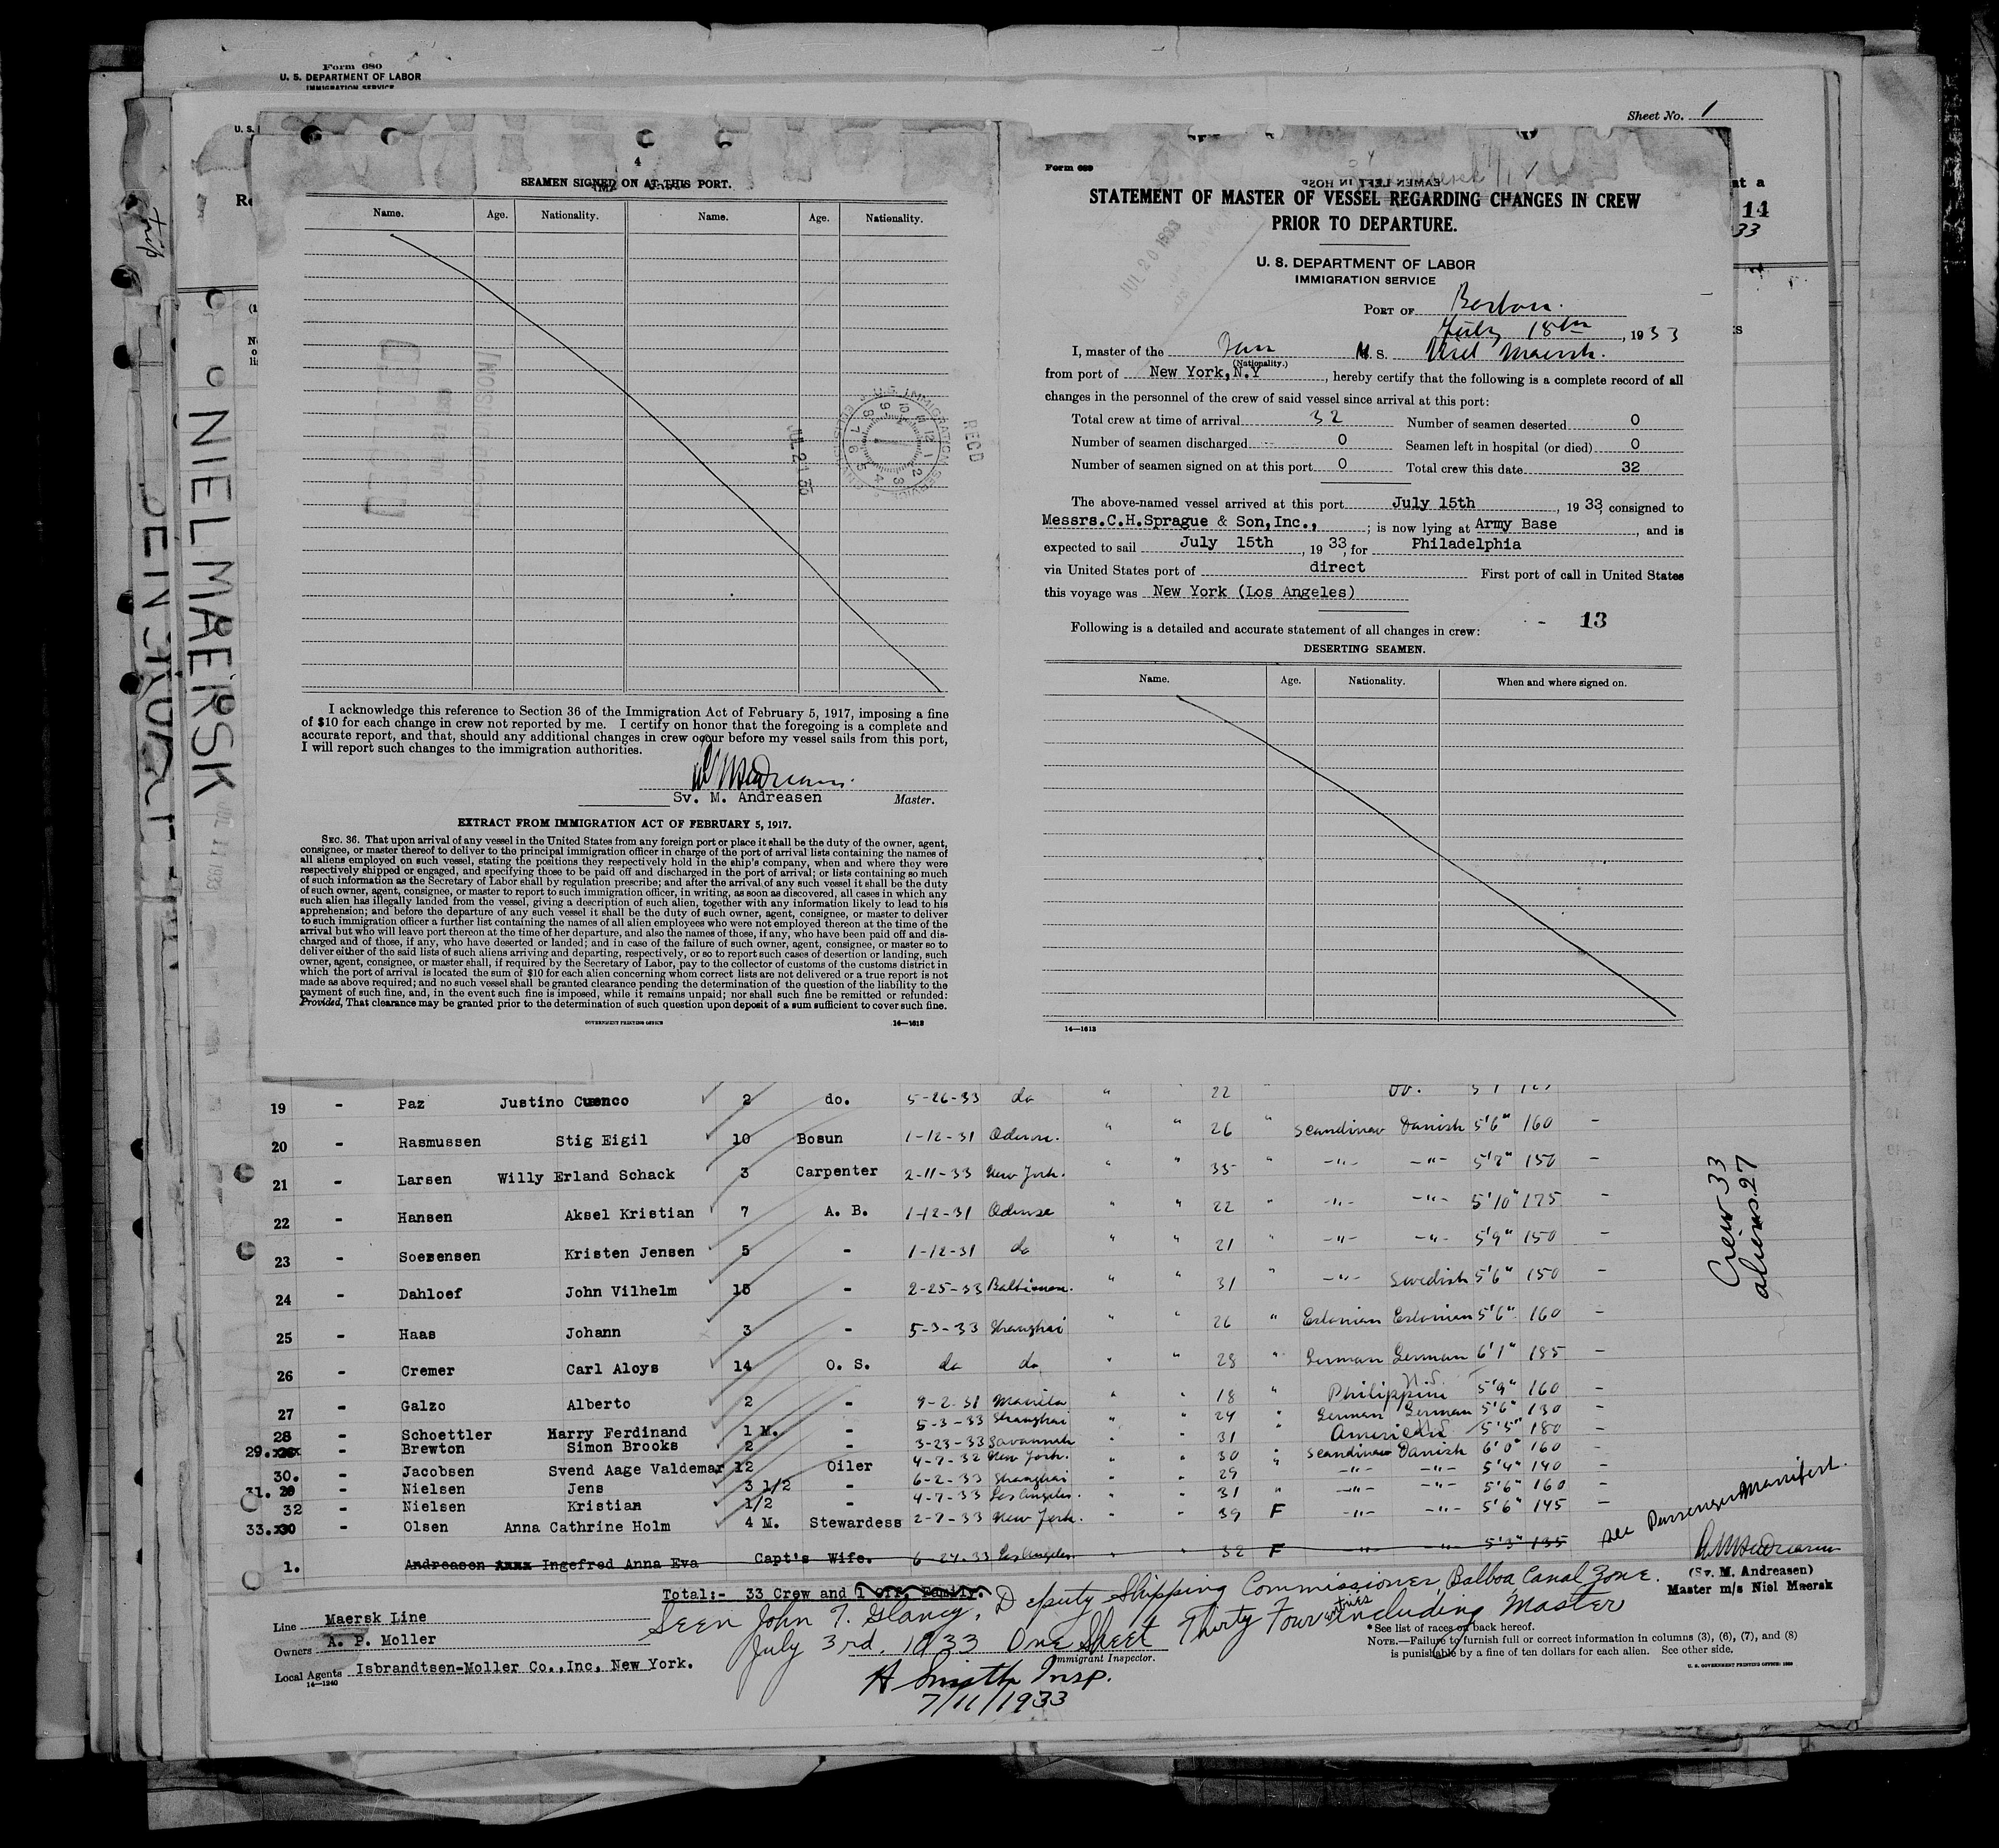 Form 680
U. S. DEPARTMENT OF LABOR
IMMIGRATION SERVICE
Sheet No. 1
4
SEAMEN SIGNED ON AT THIS PORT.
Name. Age. Nationality. Name. Age. Nationality.
JUL 21 33
RECD
I acknowledge this reference to Section 36 of the Immigration Act of February 5, 1917, imposing a fine
of $10 for each change in crew not reported by me. I certify on honor that the foregoing is a complete and
accurate report, and that, should any additional changes in crew occur before my vessel sails from this port,
I will report such changes to the immigration authorities.
Sv. M. Andreasen Master.
EXTRACT FROM IMMIGRATION ACT OF FEBRUARY 5, 1917.
SEC. 36. That upon arrival of any vessel in the United States from any foreign port or place it shall be the duty of the owner, agent,
consignee, or master thereof to deliver to the principal immigration officer in charge of the port of arrival lists containing the names of
all aliens employed on such vessel, stating the positions they respectively hold in the ship's company, when and where they were
respectively shipped or engaged, and specifying those to be paid off and discharged in the port of arrival; or lists containing so much
of such information as the Secretary of Labor shall by regulation prescribe; and after the arrival of any such vessel it shall be the duty
of such owner, agent, consignee, or master to report to such immigration officer, in writing, as soon as discovered, all cases in which any
such alien has illegally landed from the vessel, giving a description of such alien, together with any information likely to lead to his
apprehension; and before the departure of any such vessel it shall be the duty of such owner, agent, consignee, or master to deliver
to such immigration officer a further list containing the names of all alien employees who were not employed thereon at the time of the
arrival but who will leave port thereon at the time of her departure, and also the names of those, if any, who have been paid off and dis-
charged and of those, if any, who have deserted or landed; and in case of the failure of such owner, agent, consignee, or master so to
deliver either of the said lists of such aliens arriving and departing, respectively, or so to report such cases of desertion or landing, such
owner, agent, consignee, or master shall, if required by the Secretary of Labor, pay to the collector of customs of the customs district in
which the port of arrival is located the sum of $10 for each alien concerning whom correct lists are not delivered or a true report is not
made as above required; and no such vessel shall be granted clearance pending the determination of the question of the liability to the
payment of such fine, and, in the event such fine is imposed, while it remains unpaid; nor shall such fine be remitted or refunded:
Provided, That clearance may be granted prior to the determination of such question upon deposit of a sum sufficient to cover such fine.
GOVERNMENT PRINTING OFFICE 14—1613
Form 689
STATEMENT OF MASTER OF VESSEL REGARDING CHANGES IN CREW
PRIOR TO DEPARTURE.
JUL 20 1933
U. S. DEPARTMENT OF LABOR
IMMIGRATION SERVICE
PORT OF Boston.
July 18th, 1933
I, master of the Dan M. S. Niel Maersk.
(Nationality.)
from port of New York, N.Y, hereby certify that the following is a complete record of all
changes in the personnel of the crew of said vessel since arrival at this port:
Total crew at time of arrival 32 Number of seamen deserted 0
Number of seamen discharged 0 Seamen left in hospital (or died) 0
Number of seamen signed on at this port 0 Total crew this date 32
The above-named vessel arrived at this port July 15th, 1933, consigned to
Messrs.C.H.Sprague & Son, Inc., ; is now lying at Army Base, and is
expected to sail July 15th, 1933, for Philadelphia
via United States port of direct First port of call in United States
this voyage was New York (Los Angeles)
- 13
Following is a detailed and accurate statement of all changes in crew:
DESERTING SEAMEN.
Name. Age. Nationality. When and where signed on.
14—1613
NIEL MAERSK
JUL 11 1933
19 - Paz Justino Cuenco 2 do. 5-26-33 do " 22 " do.
20 - Rasmussen Stig Eigil 10 Bosun 1-12-31 Odense. " " 26 " Scandinav Danish 5'6" 160 -
21 - Larsen Willy Erland Schack 3 Carpenter 2-11-33 New York. " " 35 " -"- -"- 5'8" 150 -
22 - Hansen Aksel Kristian 7 A. B. 1-12-31 Odense " " 22 " -"- -"- 5'10" 175 -
23 - Soerensen Kristen Jensen 5 - 1-12-31 do " " 21 " -"- -"- 5'9" 150 -
24 - Dahloef John Vilhelm 15 - 2-25-33 Baltimore. " " 31 " -"- Swedish 5'6" 150 -
25 - Haas Johann 3 - 5-3-33 Shanghai " " 26 " Estonian Estonian 5'6" 160 -
26 - Cremer Carl Aloys 14 O. S. do do " " 28 " German German 6'1" 185 -
27 - Galzo Alberto 2 - 9-2-31 Manila " " 18 " Philippine U.S. 5'9" 160 -
28 - Schoettler Harry Ferdinand 1 M. - 5-3-33 Shanghai " " 24 " German German 5'6" 130 -
29. - Brewton Simon Brooks 2 - 3-23-33 Savannah " " 31 " American U.S. 5'5" 180 -
30. - Jacobsen Svend Aage Valdemar 12 Oiler 4-7-32 New York. " " 30 " Scandinav Danish 6'0" 160 -
31. - Nielsen Jens 3 1/2 - 6-2-33 Shanghai " " 29 " -"- -"- 5'4" 140
32 - Nielsen Kristian 1/2 - 4-7-33 Los Angeles. " " 31 " -"- -"- 5'6" 160 -
33. - Olsen Anna Cathrine Holm 4 M. Stewardess 2-7-33 New York. " " 39 F -"- -"- 5'6" 145 -
1. Andreasen Ingefred Anna Eva Capt's Wife. 6-27-33 Los Angeles " " 32 F -"- -"- 5'3" 135
see Passenger Manifest.
Crew 33
aliens 27
Total:- 33 Crew and 1 Off. Family.
(Sv. M. Andreasen)
Master m/s Niel Maersk
Seen John T. Glancy, Deputy Shipping Commissioner, Balboa, Canal Zone.
July 3rd. 1933 One Sheet Thirty Four entries including Master
Line Maersk Line
Owners A. P. Moller
Local Agents Isbrandtsen-Moller Co.,Inc, New York.
14—1240
Immigrant Inspector.
H Smith Insp.
7/11/1933
*See list of races on back hereof.
NOTE.—Failure to furnish full or correct information in columns (3), (6), (7), and (8)
is punishable by a fine of ten dollars for each alien. See other side.